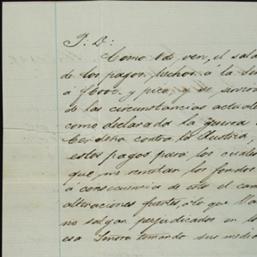 P. D.:
Como Vd. ven, el sald
de los pagos, hechos á la
á y pico, y se
de las circunstancias actuale
como declarada la guerra
contra la Austria,
estos pagos para los cuales
que me resultan los fondos
á consecuencia de esto el cam
alteraciones fuertes, á lo que
no salgan perjudicados en lo
esa Señora tomando sus medi